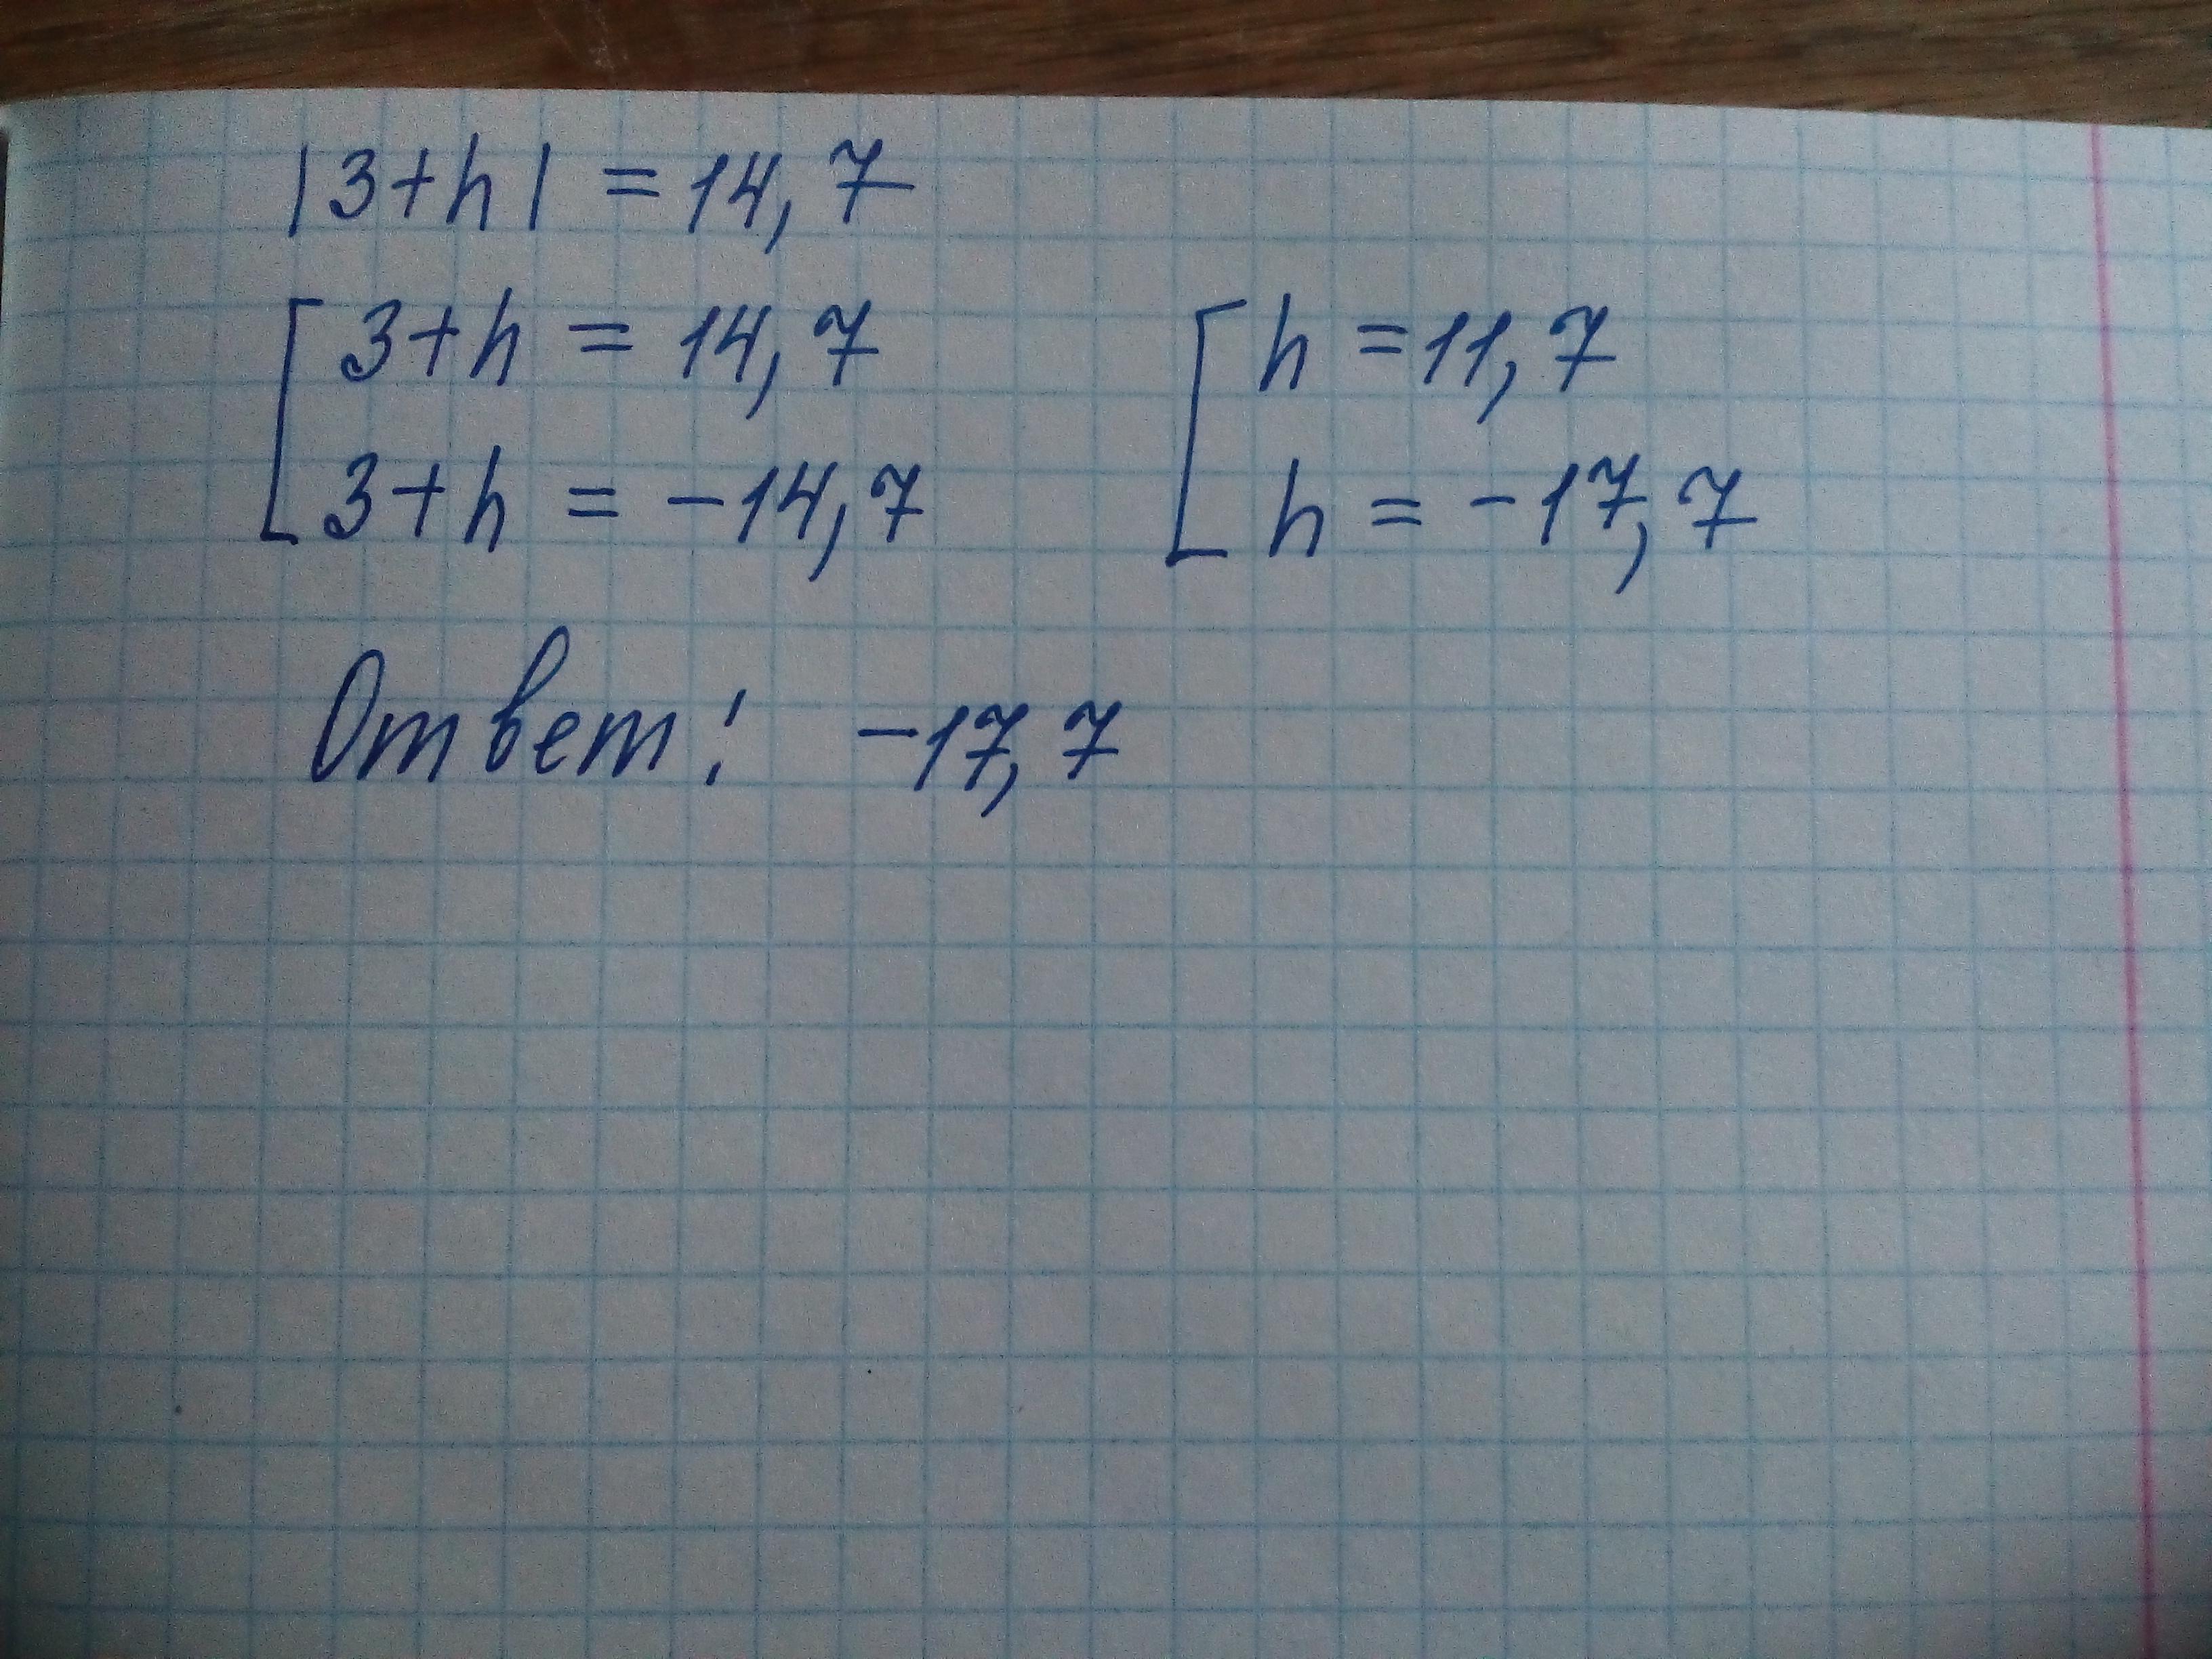 |3+h| = 14,7
[ 3+h = 14,7 [ h = 11,7
3+h = -14,7 h = -17,7
Ответ: -17,7